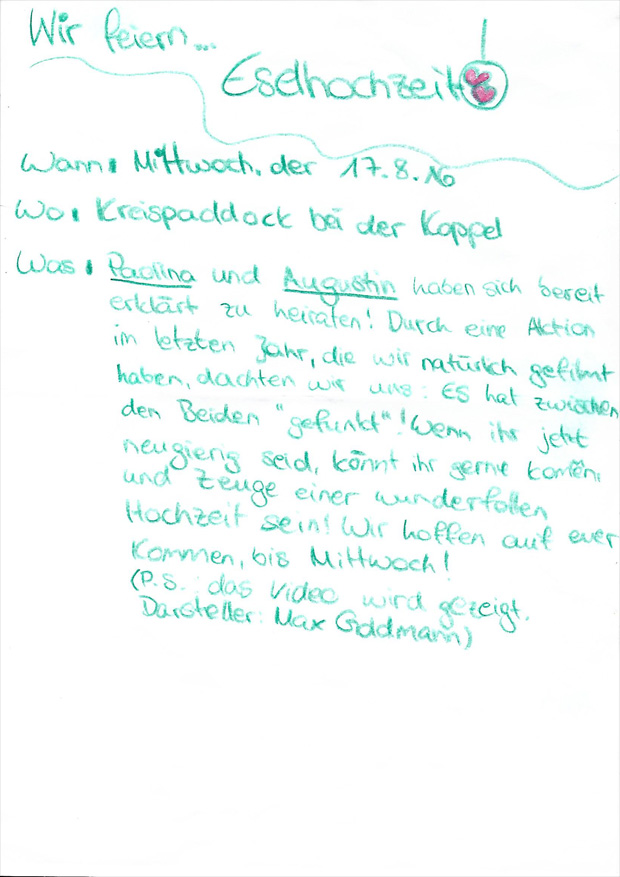 Wir feiern...
Eselhochzeit
Wann: Mittwoch, der 17.8.16
Wo: Kreispaddock bei der Koppel
Was: Paolina und Augustin haben sich bereit
erklärt zu heiraten! Durch eine Aktion
im letzten Jahr, die wir natürlich gefilmt
haben, dachten wir uns: ES hat zwischen
den Beiden "gefunkt"! Wenn ihr jetzt
neugierig seid, könnt ihr gerne
und Zeuge einer wunderfollen
Hochzeit sein! Wir hoffen auf euer
Kommen, bis Mittwoch!
(P.S.: das Video wird gezeigt.
Darsteller: Max Goldmann)